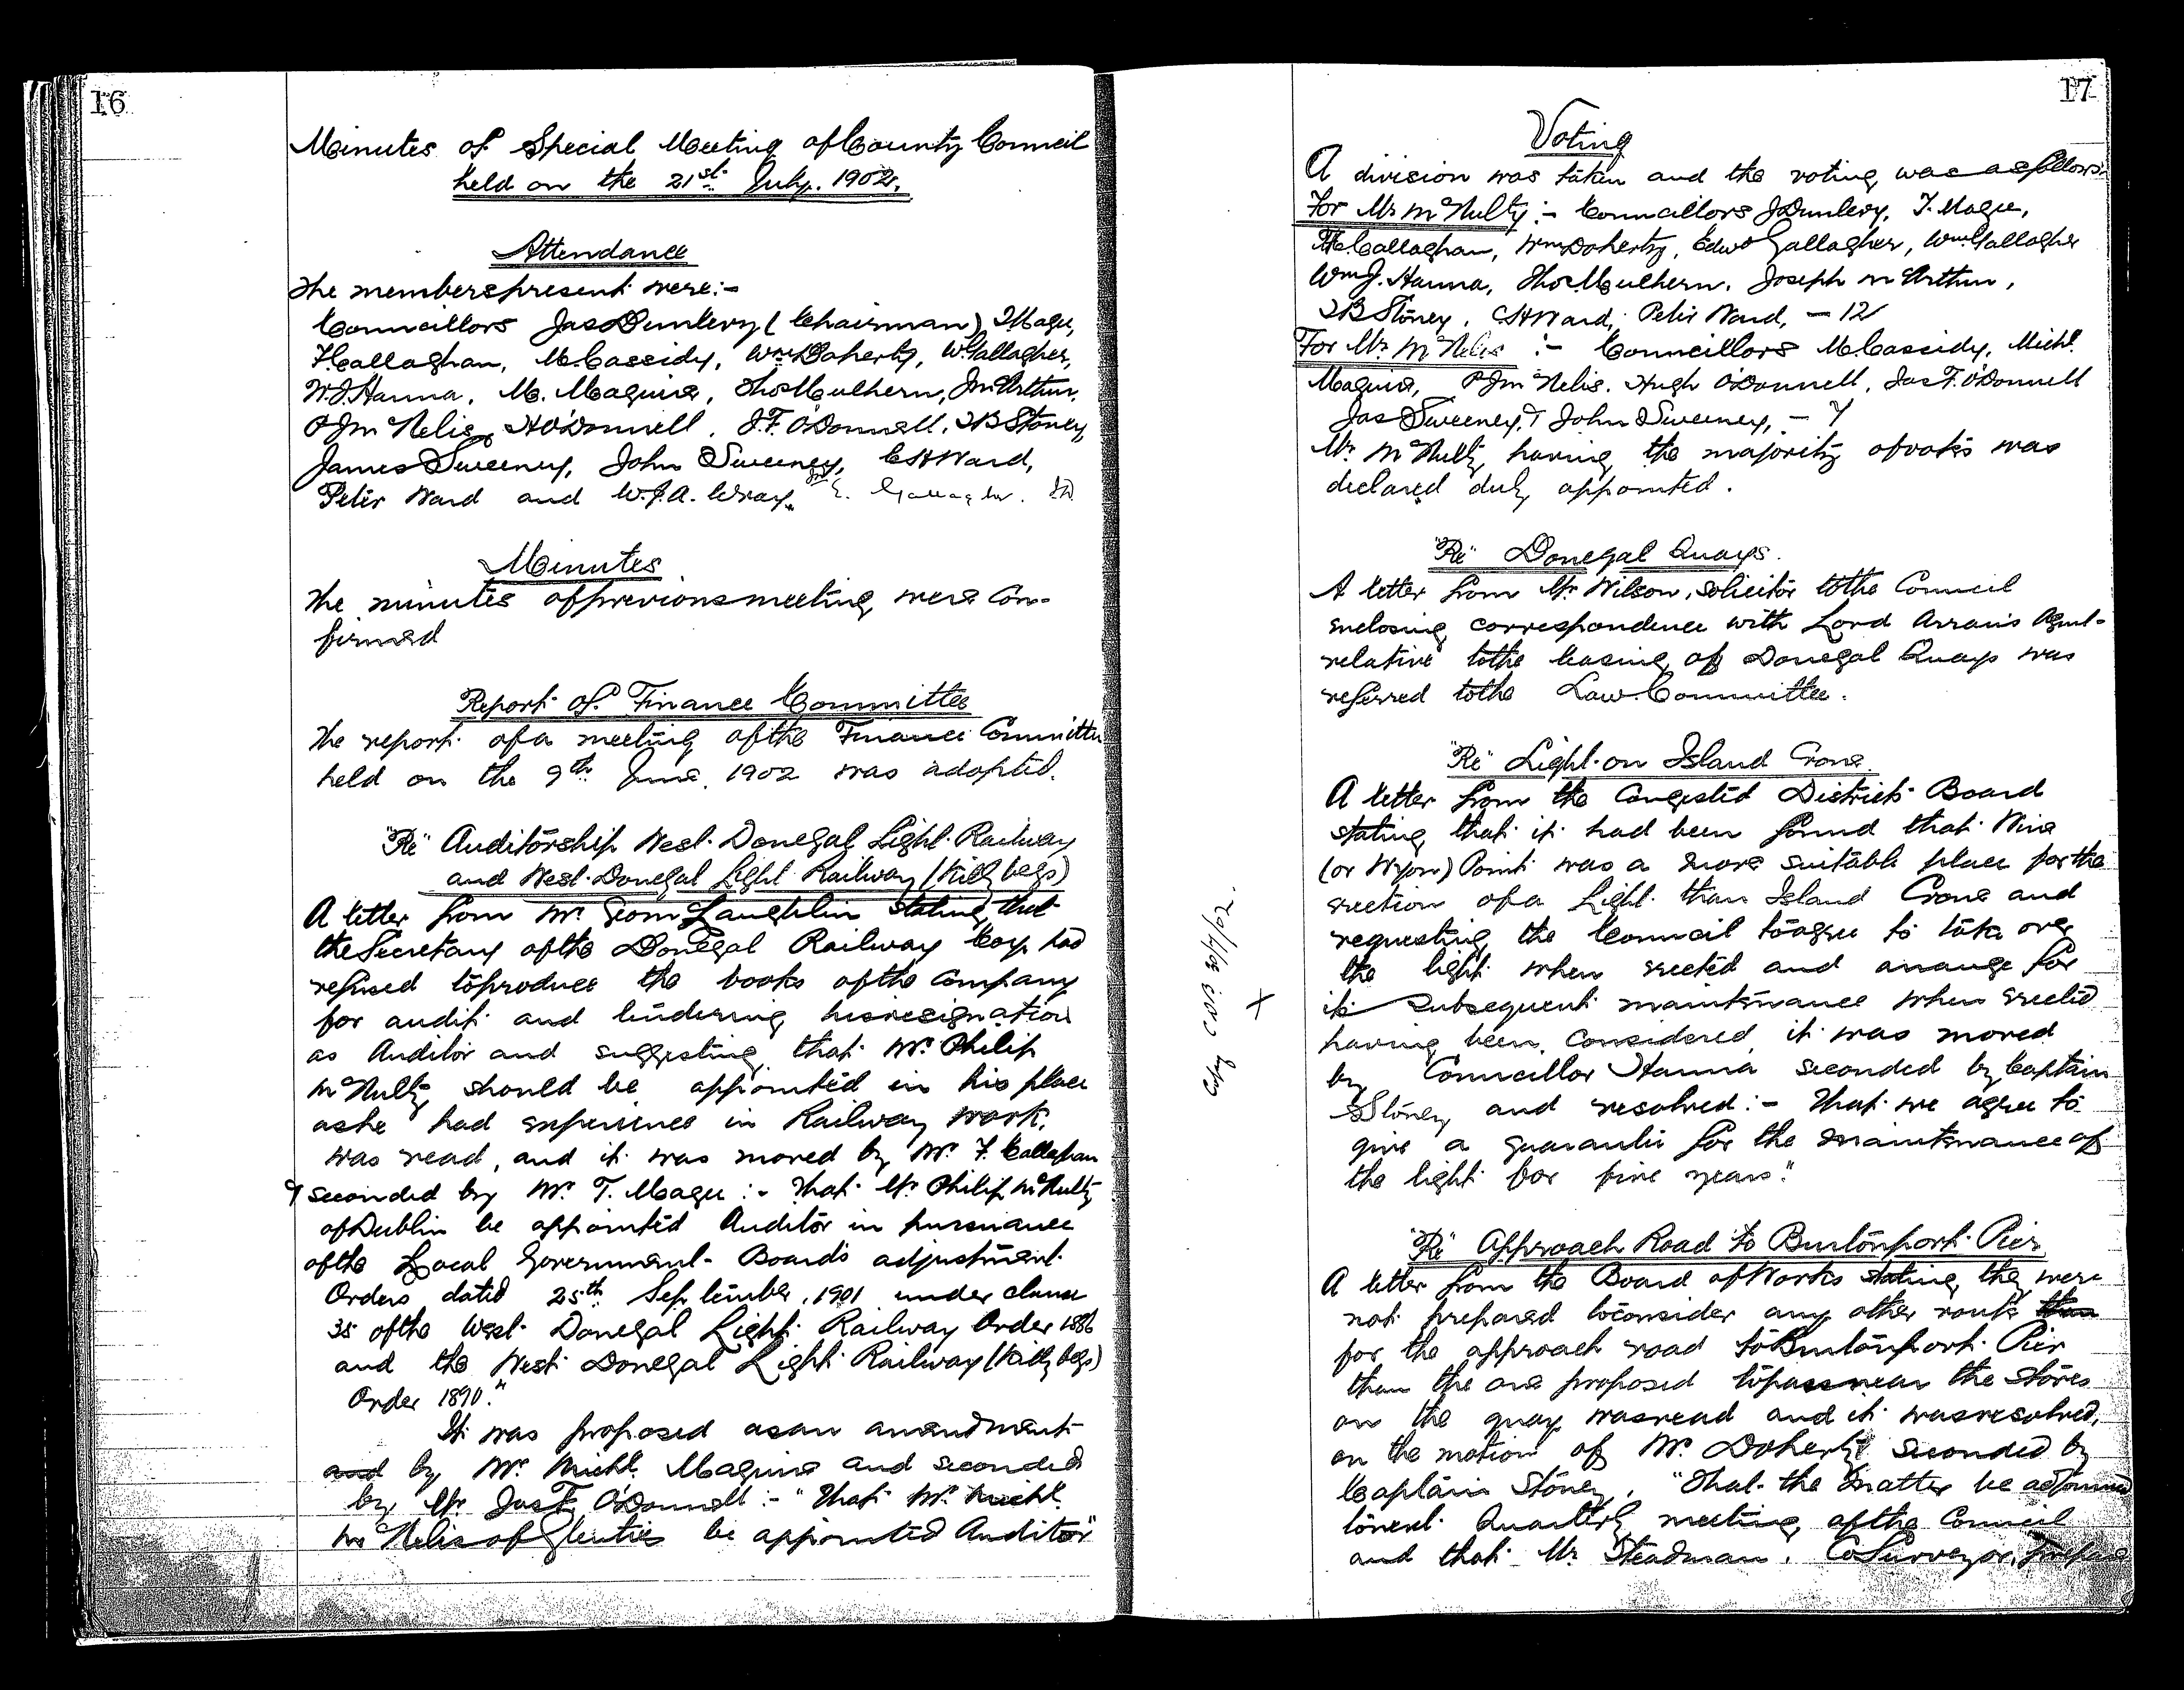 16
Minutes of Special Meeting of County Council
held on the 21st July. 1902.
Attendance
The members present were:-
Councillors Jas Dunlevy (Chairman) T Magee,
F. Callaghan, M. Cassidy, Wm Doherty, W. Gallagher,
W. J. Hanna, M. Maguire, Thos Mulhern, J McArthur,
P J McNelis, H O'Donnell, J. F. O'Donnell, T B Stoney,
James Sweeney, John Sweeney, C H Ward,
Peter Ward and W. J. A. Wray. E. Gallagher.
Minutes
The minutes of previous meeting were con-
firmed
Report of Finance Committee
The report of a meeting of the Finance Committee
held on the 9th June, 1902 was adopted.
"Re" Auditorship West Donegal Light Railway
and West Donegal Light Railway (Killybegs)
A letter from Mr Geo McLaughlin stating that
the Secretary of the Donegal Railway Coy. had
refused to produce the books of the Company
for audit and tendering his resignation
as Auditor and suggesting that Mr. Philip
McNulty should be appointed in his place
as he had experience in Railway work,
was read, and it was moved by Mr. F. Callaghan
& seconded by Mr. T. Magee :- That Mr. Philip McNulty
of Dublin be appointed Auditor in pursuance
of the Local Government Board's adjustment
Orders dated 25th September, 1901 under clause
35 of the West Donegal Light Railway Order 1886
and the West Donegal Light Railway (Killybegs)
Order 1890."
It was proposed as an amendment
and by Mr. Michl. Maguire and seconded
by Mr. Jas F. O'Donnell :- "That Mr. Michl.
McNelis of Glenties be appointed Auditor"
Copy C.W.P. 23/7/02.
X
17
Voting
A division was taken and the voting was as follows:
For Mr McNulty :- Councillors J Dunlevy, T. Magee,
F. Callaghan, Wm Doherty, Edwd Gallagher, Wm Gallagher
Wm J. Hanna, Thos Mulhern, Joseph McArthur,
T B Stoney, C H Ward, Peter Ward, - 12
For Mr McNelis :- Councillors M. Cassidy, Michl.
Maguire, P J McNelis, Hugh O'Donnell, Jas F. O'Donnell
Jas Sweeney, & John Sweeney, - 7
Mr. McNulty having the majority of votes was
declared duly appointed.
"Re" Donegal Quays.
A letter from Mr Wilson, Solicitor to the Council
enclosing correspondence with Lord Arran's Agent
relative to the leasing of Donegal Quays was
referred to the Law Committee.
"Re" Light on Island Crone
A letter from the Congested Districts Board
stating that it had been found that Wine
(or Wyon) Point was a more suitable place for the
erection of a Light than Island Crone and
requesting the Council to agree to take over
the light when erected and arrange for
its subsequent maintenance when erected
having been considered it was moved
by Councillor Hanna seconded by Captain
Stoney and resolved :- That we agree to
give a guarantee for the maintenance of
the light for five years."
"Re" Approach Road to Burtonport Pier
A letter from the Board of Works stating they were
not prepared to consider any other route than
for the approach road to Burtonport Pier
than the one proposed to pass near the stores
on the quay was read and it was resolved,
on the motion of Mr. Doherty seconded by
Captain Stoney, "That the matter be adjourned
to next Quarterly meeting of the Council
and that Mr Steadman, Co Surveyor, prepare